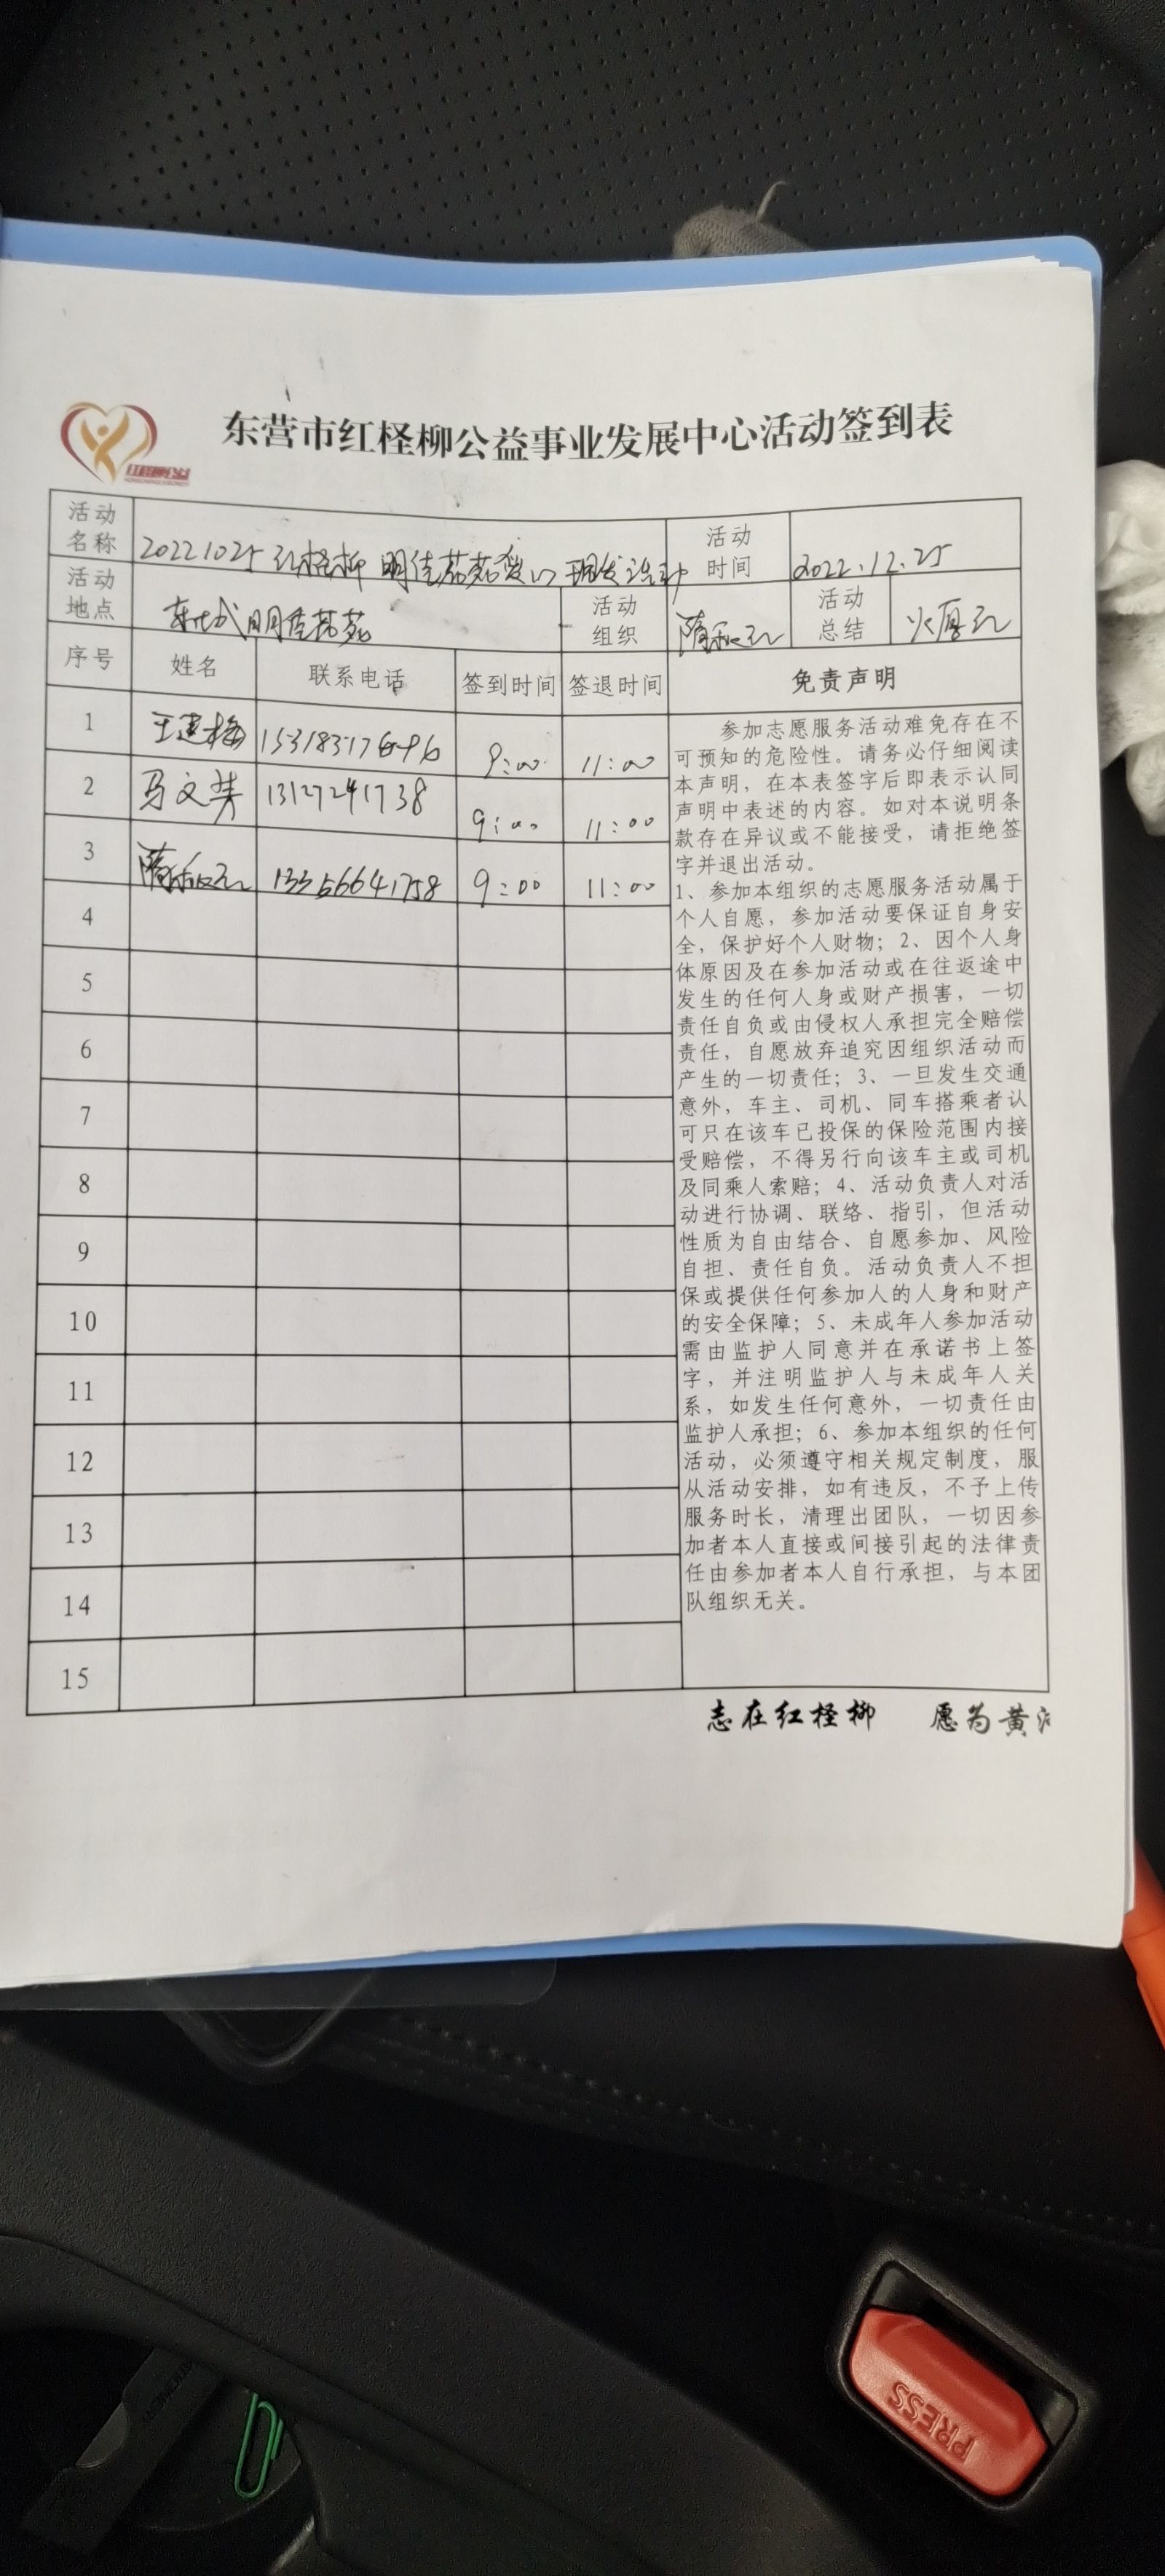 东营市红柽柳公益事业发展中心活动签到表
活动名称 20221025 红柽柳 明佳荔苑 活动时间 2022.12.25
活动地点 东城明佳荔苑 活动组织 活动总结
序号 姓名 联系电话 签到时间 签退时间 免责声明
1 王建梅 9:00 11:00
2 马文 13127241738 9:00 11:00
3 13356641758 9:00 11:00
4
5
6
7
8
9
10
11
12
13
14
15
参加志愿服务活动难免存在不
可预知的危险性。请务必仔细阅读
本声明，在本表签字后即表示认同
声明中表述的内容。如对本说明条
款存在异议或不能接受，请拒绝签
字并退出活动。
1、参加本组织的志愿服务活动属于
个人自愿，参加活动要保证自身安
全，保护好个人财物；2、因个人身
体原因及在参加活动或在往返途中
发生的任何人身或财产损害，一切
责任自负或由侵权人承担完全赔偿
责任，自愿放弃追究因组织活动而
产生的一切责任；3、一旦发生交通
意外，车主、司机、同车搭乘者认
可只在该车已投保的保险范围内接
受赔偿，不得另行向该车主或司机
及同乘人索赔；4、活动负责人对活
动进行协调、联络、指引，但活动
性质为自由结合、自愿参加、风险
自担、责任自负。活动负责人不担
保或提供任何参加人的人身和财产
的安全保障；5、未成年人参加活动
需由监护人同意并在承诺书上签
字，并注明监护人与未成年人关
系，如发生任何意外，一切责任由
监护人承担；6、参加本组织的任何
活动，必须遵守相关规定制度，服
从活动安排，如有违反，不予上传
服务时长，清理出团队，一切因参
加者本人直接或间接引起的法律责
任由参加者本人自行承担，与本团
队组织无关。
志在红柽柳 愿为黄
PRESS